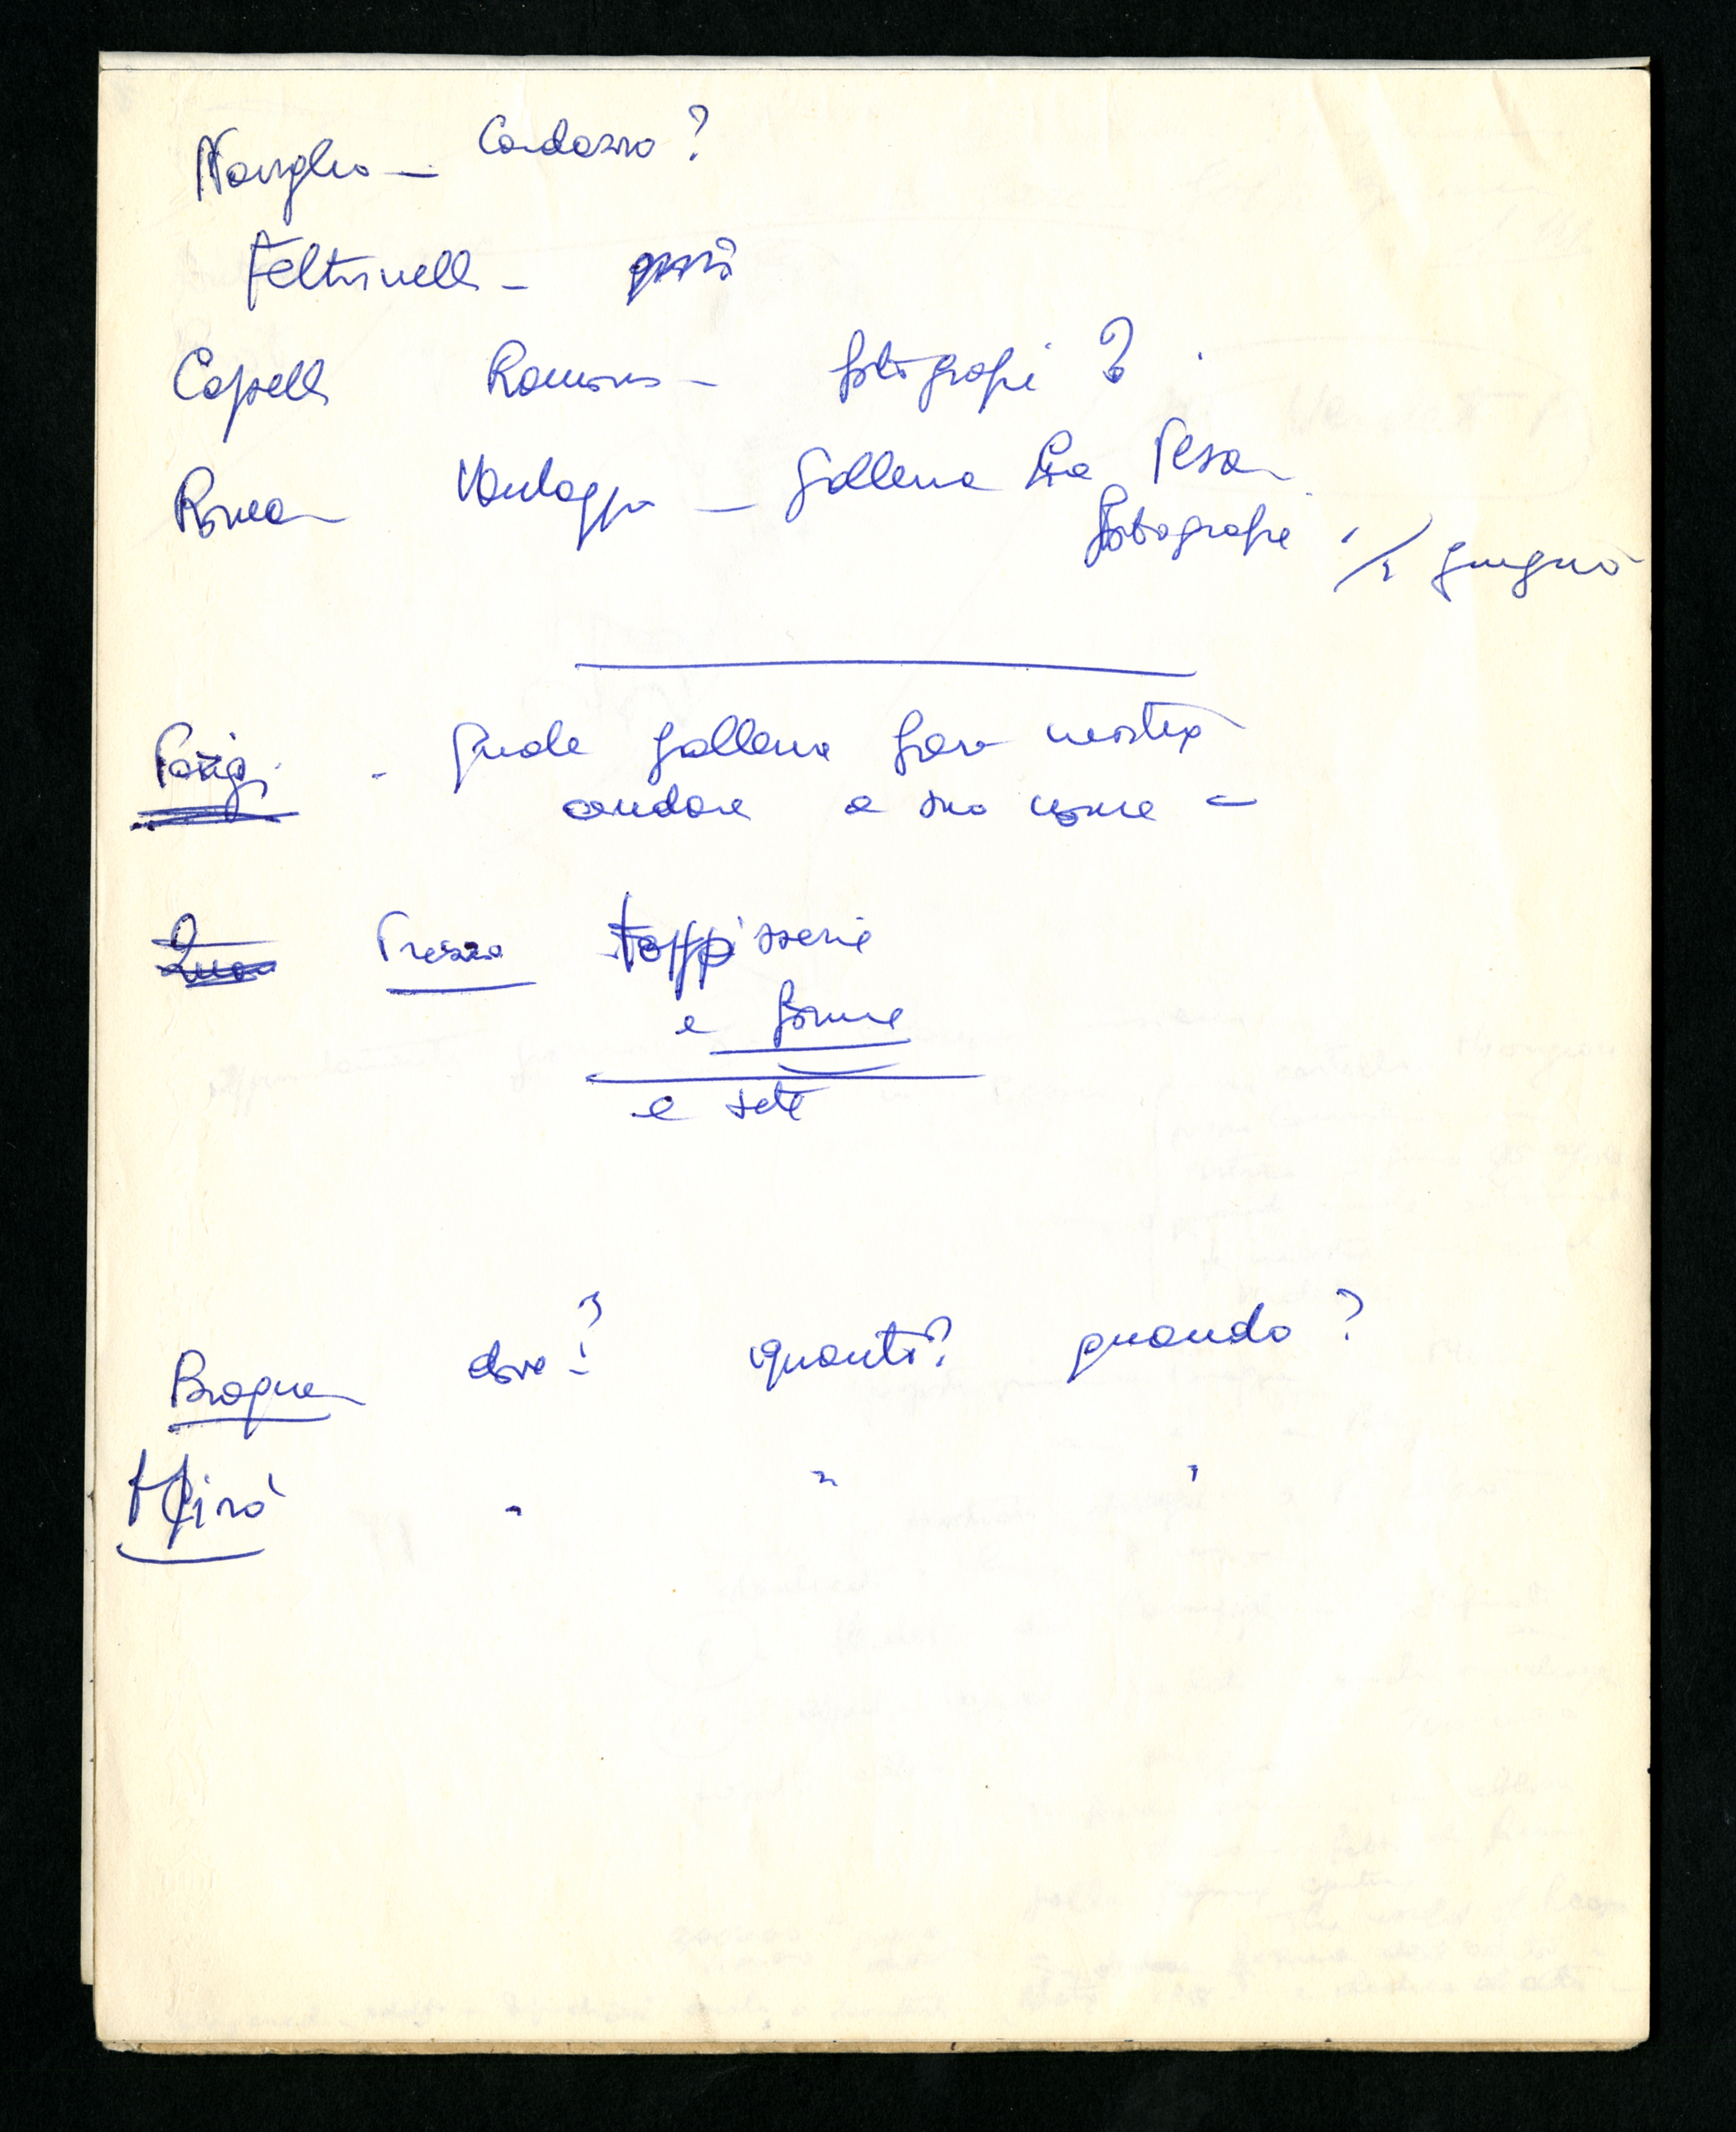 Naviglio — Cardazzo ?
Feltrinelli –
Capelli Romano – fotografie ?
Roma Vantaggio — Galleria La Pesa
fotografie 1/2 giugno
Parigi - Quale galleria farà mostra
andare a suo nome –
Prezzo tappisserie
e forme
e sete
Braque dove ? quanti ? quando ?
Mirò " " "